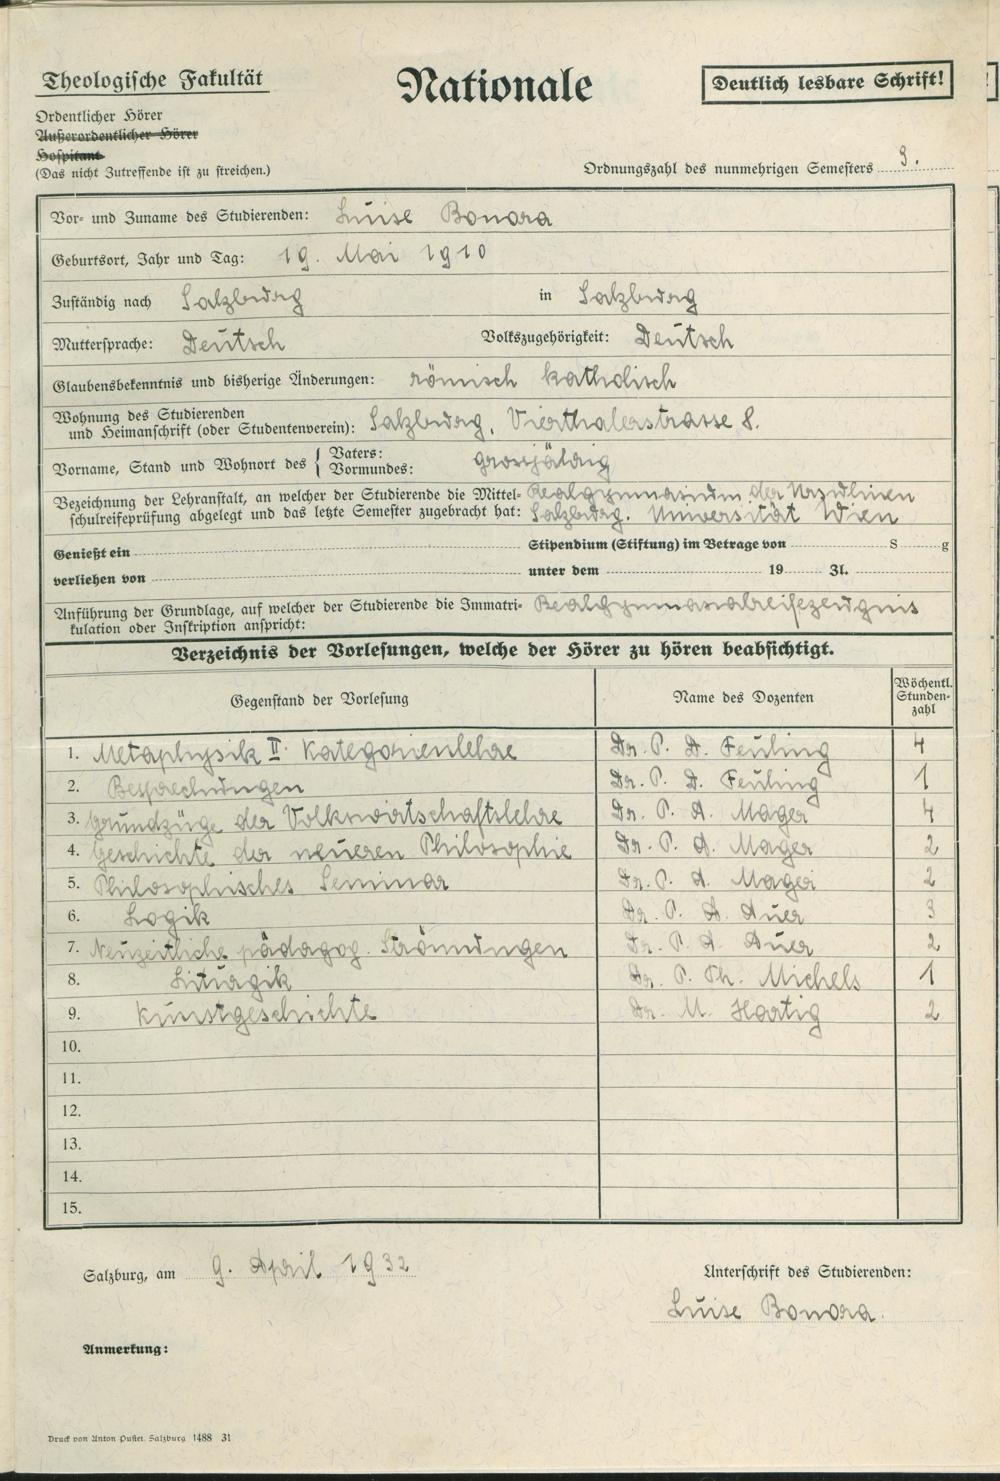 Theologische Fakultät
Nationale
Deutlich lesbare Schrift!
Ordentlicher Hörer
Außerordentlicher Hörer
Hospitant
(Das nicht Zutreffende ist zu streichen.)
Ordnungszahl des nunmehrigen Semesters
Vor- und Zuname des Studierenden: Luise Bonora
Geburtsort, Jahr und Tag: 19. Mai 1910
Zuständig nach Salzburg in Salzburg
Muttersprache: Deutsch Volkszugehörigkeit: Deutsch
Glaubensbekenntnis und bisherige Änderungen: römisch katholisch
Wohnung des Studierenden
und Heimanschrift (oder Studentenverein): Salzburg, Vierthalerstrasse 8.
Vorname, Stand und Wohnort des { Vaters:
Vormundes: grossjährig
Bezeichnung der Lehranstalt, an welcher der Studierende die Mittel- Realgymnasium der Ursulinen
schulreifeprüfung abgelegt und das letzte Semester zugebracht hat: Salzburg. Universität Wien
Genießt ein Stipendium (Stiftung) im Betrage von S g
verliehen von unter dem 19 Zl.
Anführung der Grundlage, auf welcher der Studierende die Immatri- Realgymnasialreifezeugnis
kulation oder Inskription anspricht:
Verzeichnis der Vorlesungen, welche der Hörer zu hören beabsichtigt.
Gegenstand der Vorlesung Name des Dozenten Wöchentl. Stunden-zahl
1. Metaphysik II. Kategorienlehre Dr. P. D. Feuling 4
2. Besprechungen Dr. P. D. Feuling 1
3. Grundzüge der Volkswirtschaftslehre Dr. P. A. Mager 4
4. Geschichte der neueren Philosophie Dr. P. A. Mager 2
5. Philosophisches Seminar Dr. P. A. Mager 2
6. Logik Dr. P. A. Auer 3
7. Neuzeitliche pädagog. Strömungen Dr. P. A. Auer 2
8. Liturgik Dr. P. Th. Michels 1
9. Kunstgeschichte Dr. M. Hartig 2
10.
11.
12.
13.
14.
15.
Salzburg, am 9. April 1932
Unterschrift des Studierenden:
Luise Bonora.
Anmerkung:
Druck von Anton Pustet, Salzburg 1488 31